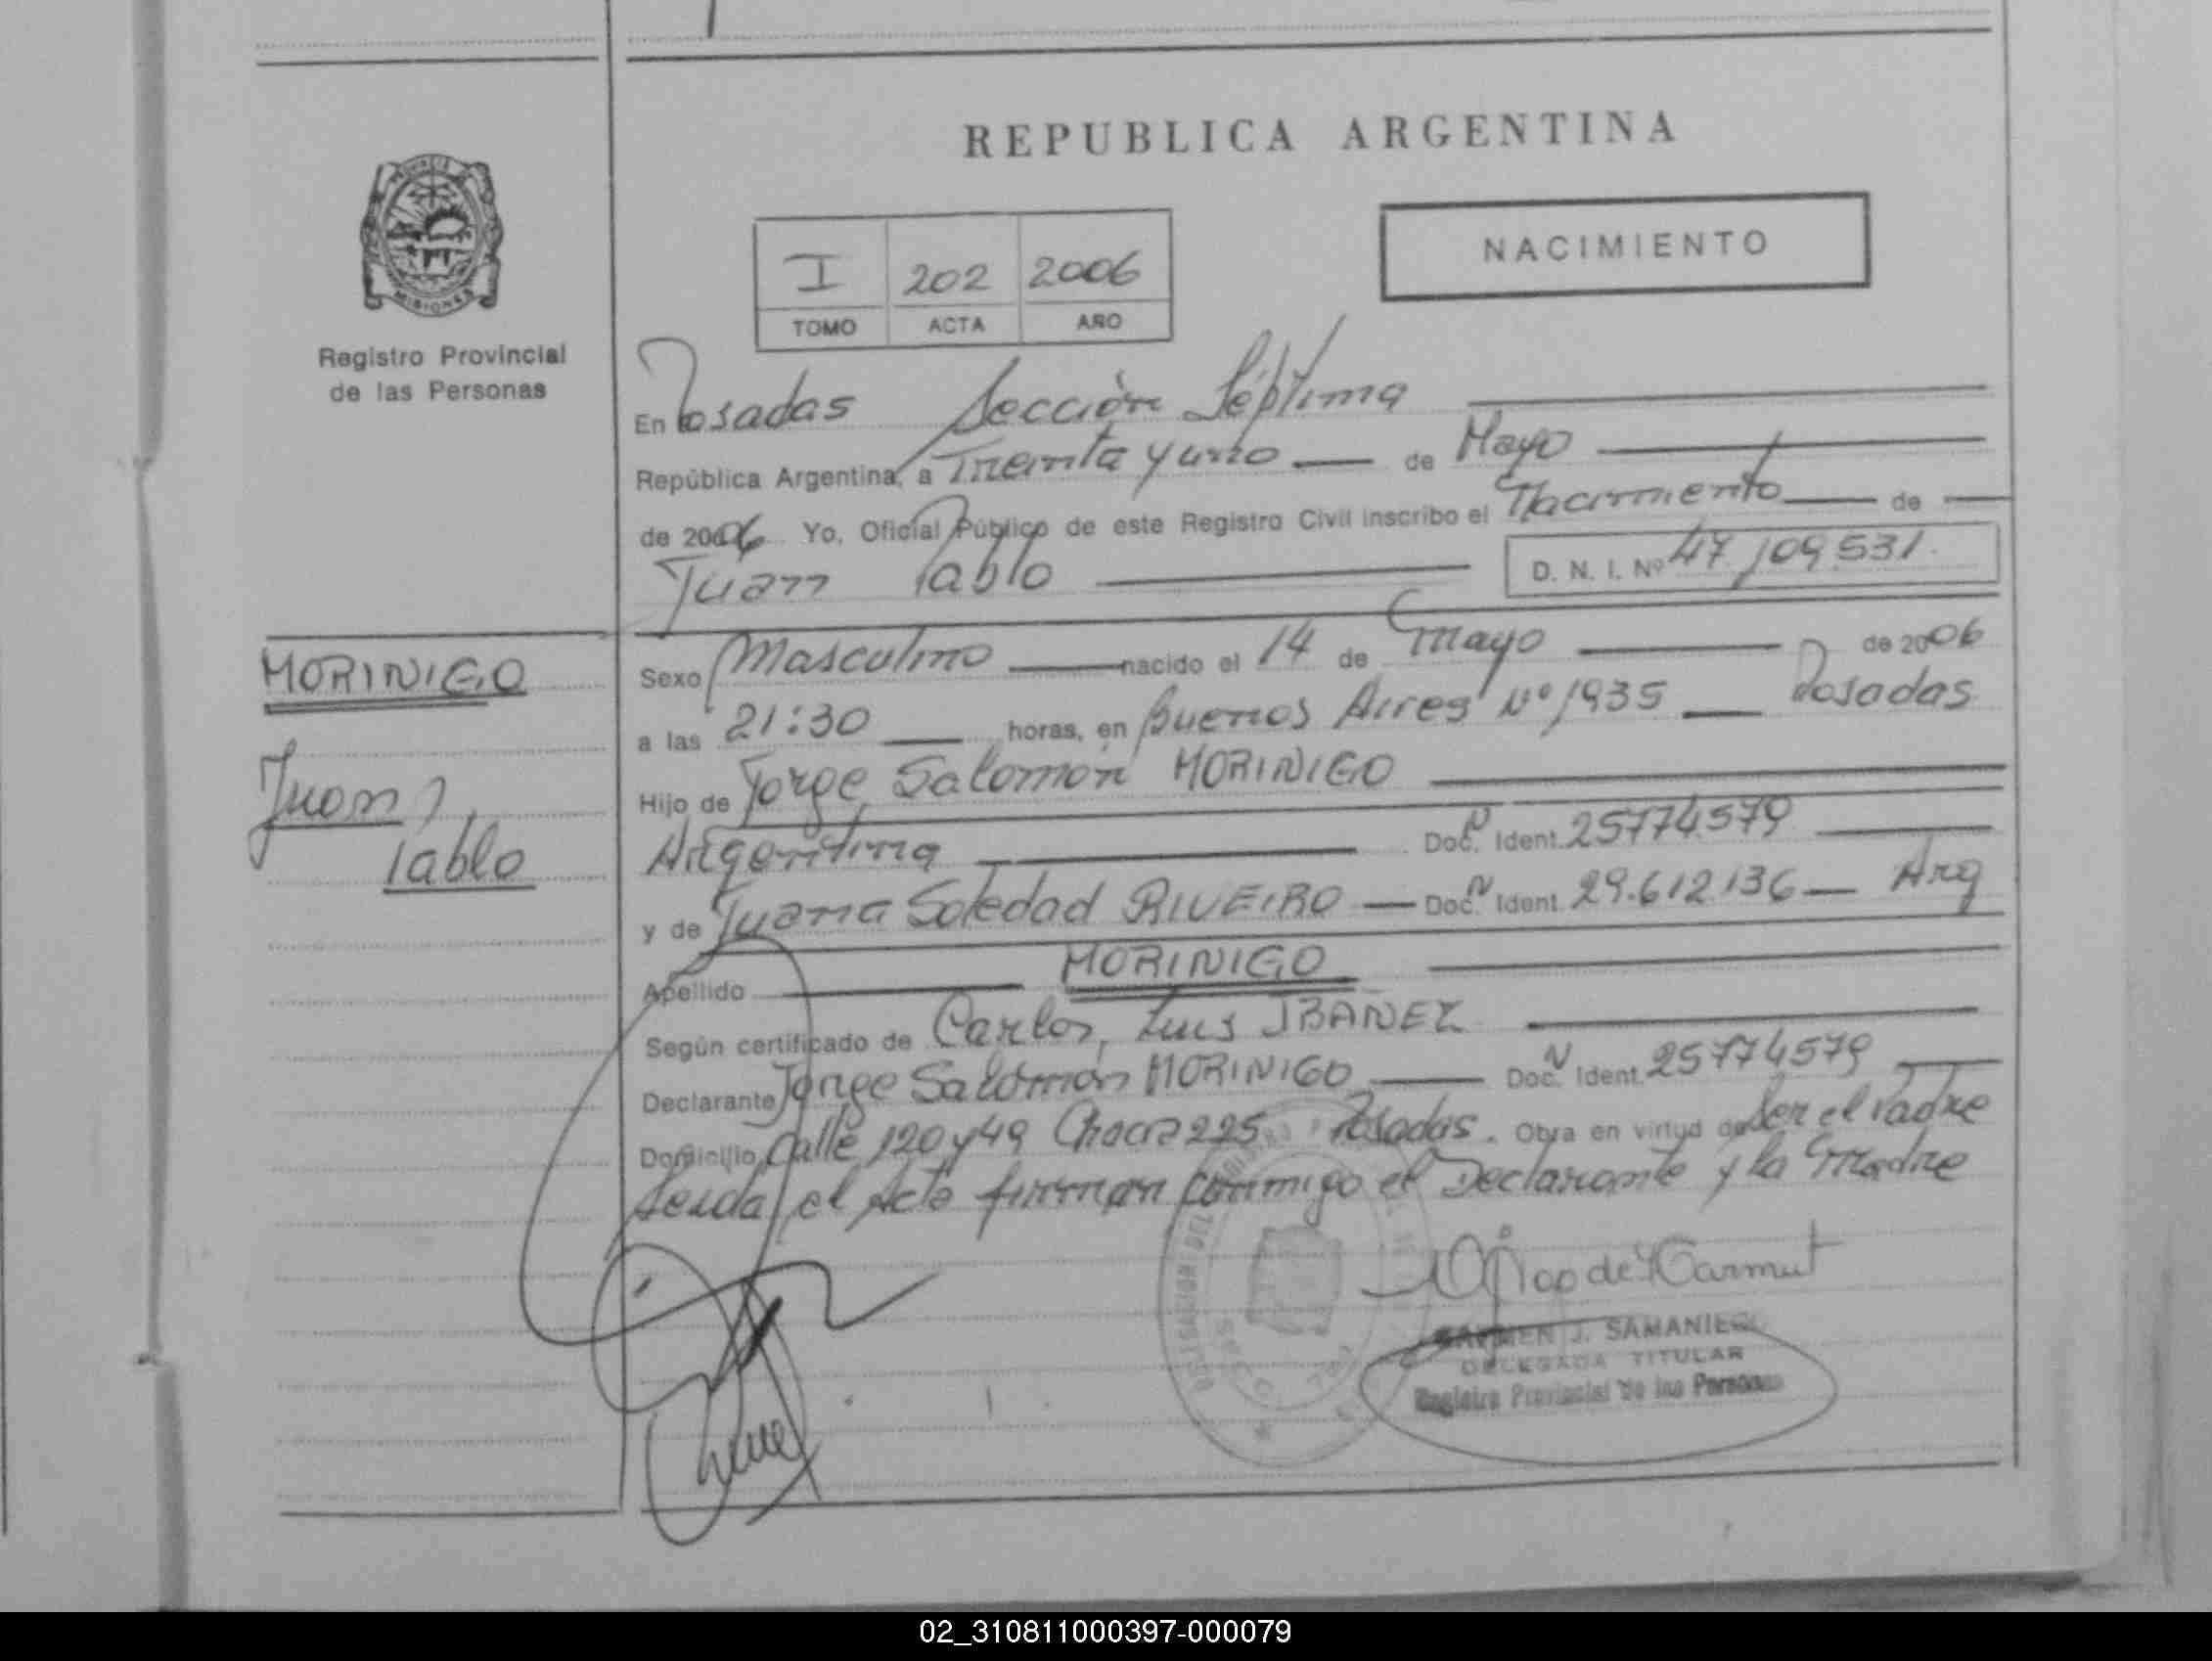 REPUBLICA ARGENTINA
PROVINCIA DE
MISIONES
Registro Provincial
de las Personas
NACIMIENTO
I 202 2006
TOMO ACTA AÑO
En Posadas Sección Séptima
República Argentina, a Treinta y uno de Mayo
de 2006 Yo, Oficial Público de este Registro Civil inscribo el Nacimiento de
Juan Pablo D. N. I. Nº 47109531
MORINIGO
Juan
Pablo
Sexo Masculino nacido el 14 de mayo de 2006
a las 21:30 horas, en Buenos Aires Nº 1935 Posadas
Hijo de Jorge Salomón MORINIGO
Argentina Doc. N Ident. 25774579
y de Juana Soledad RIVEIRO Doc. N Ident. 29.612.136 Arg
Apellido MORINIGO
Según certificado de Carlos, Luis IBAÑEZ
Declarante Jorge Salomón MORINIGO Doc. N Ident. 25774579
Domicilio Calle 120 y 49 Chacra 225 Posadas. Obra en virtud de Ser el Padre
Leida el Acta firman conmigo el Declarante y la Madre
CARMEN J. SAMANIEGO
DELEGADA TITULAR
Registro Provincial de las Personas
02_310811000397-000079